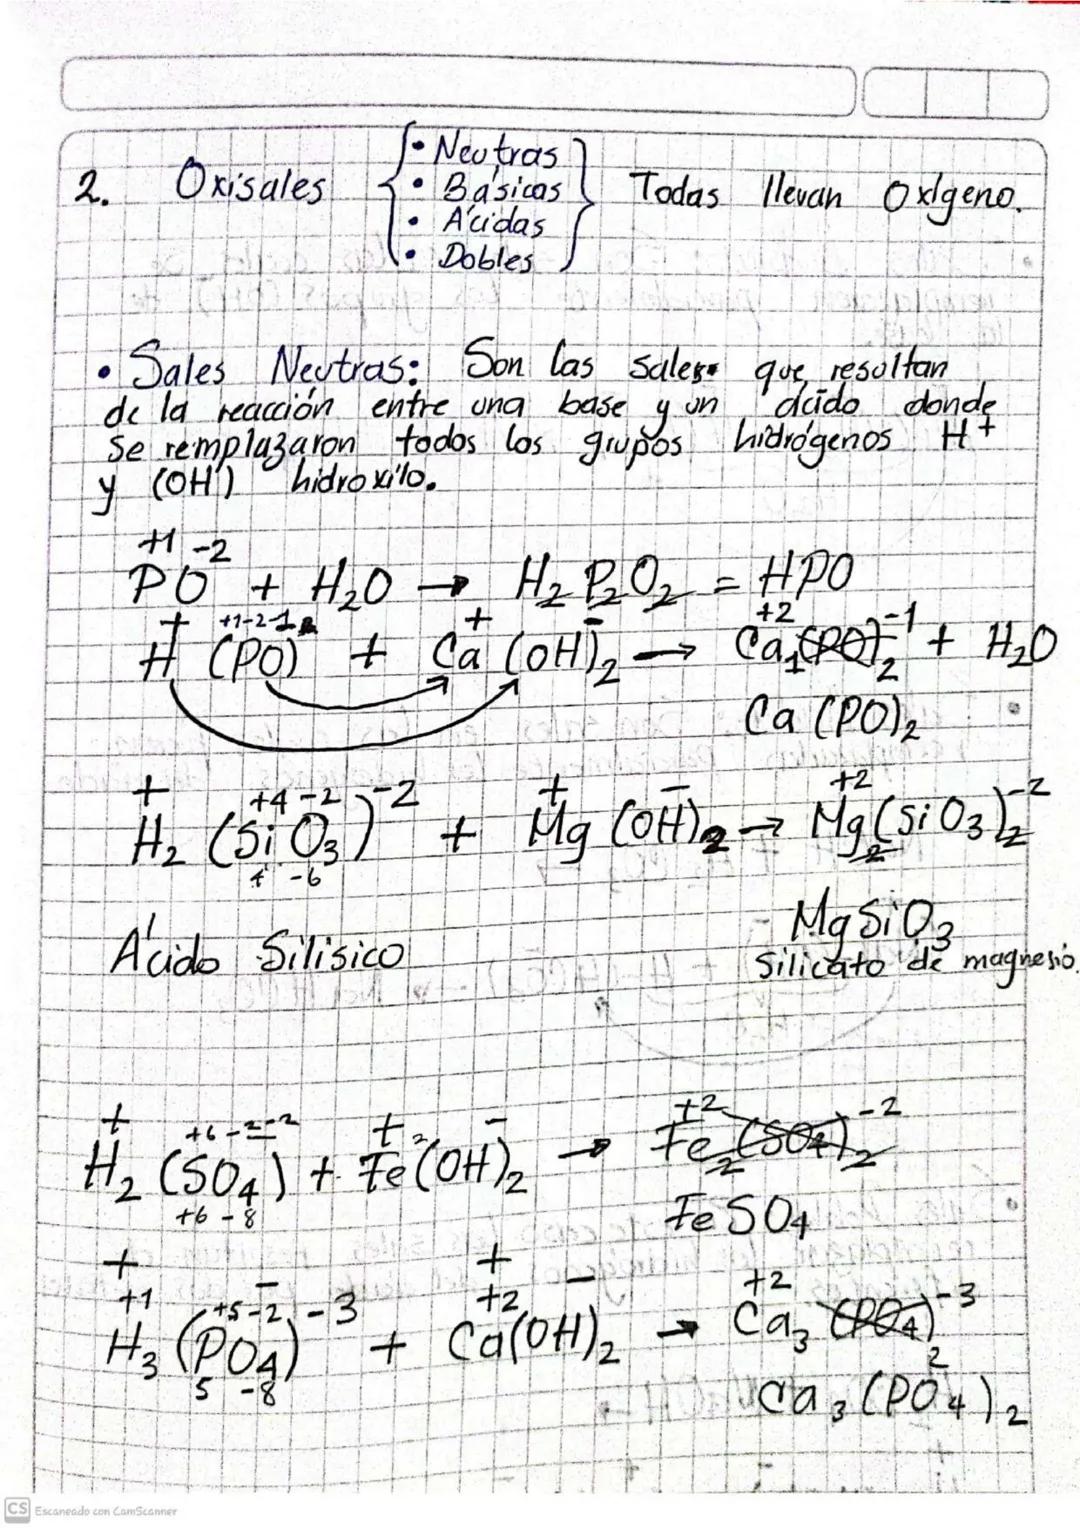 2. Oxisales { • Neutras
• Básicas
• Ácidas
• Dobles } Todas llevan Oxígeno.
• Sales Neutras: Son las sales que resultan
de la reacción entre una base y un ácido donde
se remplazaron todos los grupos hidrógenos H+
y (OH) hidroxilo.
+1 -2
PO + H2O → H2P2O2 = HPO
+ +1-2-1 + - +2 -1
H (PO) + Ca (OH)2 → Ca1(PO)2 + H2O
Ca (PO)2
+ +4 -2 -2 + - +2 -2
H2 (SiO3) + Mg (OH)2 → Mg2(SiO3)2
4 -6
MgSiO3
Ácido Silisico Silicato de magnesio.
+ +6 -2 -2 + 2 - +2 -2
H2 (SO4) + Fe (OH)2 → Fe2(SO4)2
+6 -8
FeSO4
+ - +
+1 +5 -2 -3 +2 - +2 -3
H3 (PO4) + Ca(OH)2 → Ca3 (PO4)2
5 -8
Ca3(PO4)2
CS Escaneado con CamScanner